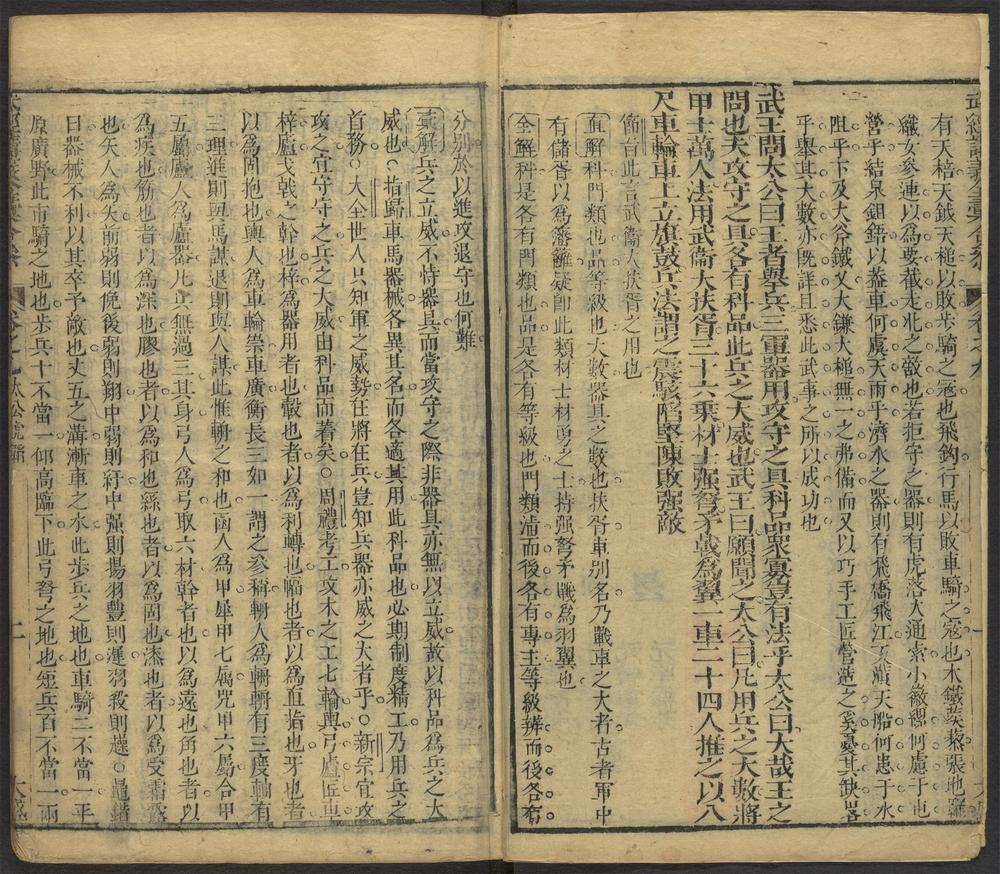 有天棓天鉞天槌以敗步騎之冦也飛鈎行馬以敗車騎之冦也木鐵蒺藜張地羅
織女參連以爲要截走北之
也若拒守之器則有虎落大通索小徽縲何慮于屯
營乎結
鉏鋙以葢車何虞天雨乎濟水之器則有飛橋飛江
天船何患于水
阻乎下及大斧鐵乂大鎌大槌無一之弗備而又以巧手工匠營造之奚憂其缺畧
乎舉其大數亦旣詳且悉此武事之所以成功也
武王問太公曰王者舉兵三軍器用攻守之具科品衆寡豈有法乎太公曰大哉王之
問也夫攻守之具各有科品此兵之大威也武王曰願聞之太公曰凡用兵之大數將
甲士萬人法用武衞大扶胥三十六乘材士强弩矛戟爲翼一車二十四人推之以八
尺車輪車上立旗鼓兵法謂之震駭陷堅陳敗强敵
節旨此言武衞大扶胥之用也
直解科門類也品等級也大數器具之數也扶胥車別名乃戰車之大者古者軍中
有儲胥以爲籓籬疑卽此類材士材勇之士持强弩矛戰爲羽翼也
全解科是各有門類也品是各有等級也門類淸而後各有專主等級辨而後各有
分別於以進攻退守也何難
彙解兵之立威不恃器具而當攻守之際非器具亦無以立威故以科品爲兵之大
威也○指歸車馬器械各異其名而各適其用此科品也必期制度精工乃用兵之
首務○大全世人只知軍之威勢在將在兵豈知兵器亦威之大者乎○新宗宜攻
攻之宜守守之兵之大威由科品而著矣○周禮考工攻木之工七輪輿弓廬匠車
梓廬戈戟之幹也梓爲器用者也轂也者以爲利轉也輻也者以爲直指也牙也者
以爲固抱也輿人爲車輪崇車廣衡長三如一謂之參稱輈人爲輈輈有三度軸有
三理進則與馬謀退則與人謀此惟輈之和也函人爲甲犀甲七屬兕甲六屬合甲
五屬廬人爲廬器凡兵無過三其身弓人爲弓取六材幹者也以爲遠也角也者以
爲疾也筋也者以爲深也膠也者以爲和也絲也者以爲固也漆也者以爲受霜露
也矢人爲矢前弱則俛後弱則翔中弱則紆中强則揚羽豐則遲羽殺則趮○鼂錯
曰器械不利以其卒予敵也丈五之溝漸車之水此步兵之地也車騎二不當一平
原廣野此車騎之地也步兵十不當一仰高臨下此弓弩之地也短兵百不當一兩